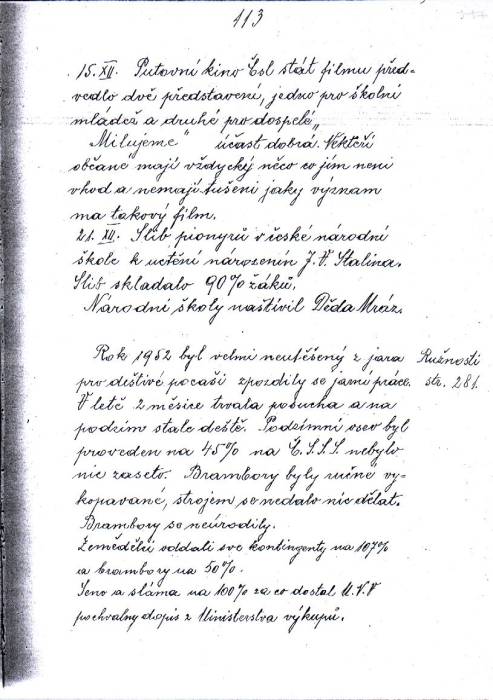 113
15. XII. Putovní kino Čsl stát filmu před-
vedlo dvě představení, jedno pro školní
mládež a druhé pro dospělé „
Milujeme" účast dobrá. Někteří
občané mají vždycky něco co jim není
vhod a nemají tušení jaky význam
ma takový film.
21. XII. Slib pionyrů v české národní
škole k uctění narosenin J. V. Stalina.
Slib skladalo 90% žáků.
Národní školy naštivil Děda Mráz.
Rok 1952 byl velmi neutěšený z jara
Ružnosti
pro deštivé počasi zpozdily se jarní práce.
str. 281.
V letě 2 měsice trvala posucha a na
podzim stale deště. Podzimní osev byl
proveden na 45% na Č.S.S.S. nebylo
nic zaseto. Brambory byly ručně vy-
kopavané, strojem se nedalo nic dělat.
Brambory se neurodily.
Zemědělci oddali sve kontingenty na 107%
a brambory na 50%.
Seno a sláma na 100% za co dostal M.N.V
pochvalny dopis z Ministerstva výkupů.